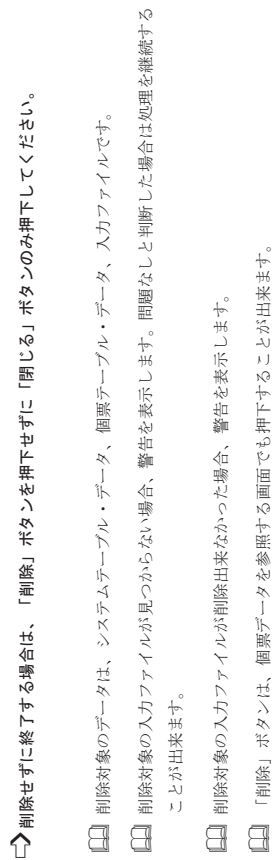 削除せずに終了する場合は、「削除」ボタンを押下せずに「閉じる」ボタンのみ押下してください。
削除対象のデータは、システムテーブル・データ、個票テーブル・データ、入力ファイルです。
削除対象の入力ファイルが見つからない場合、警告を表示します。問題なしと判断した場合は処理を継続する
ことが出来ます。
削除対象の入力ファイルが削除出来なかった場合、警告を表示します。
「削除」ボタンは、個票データを参照する画面でも押下することが出来ます。